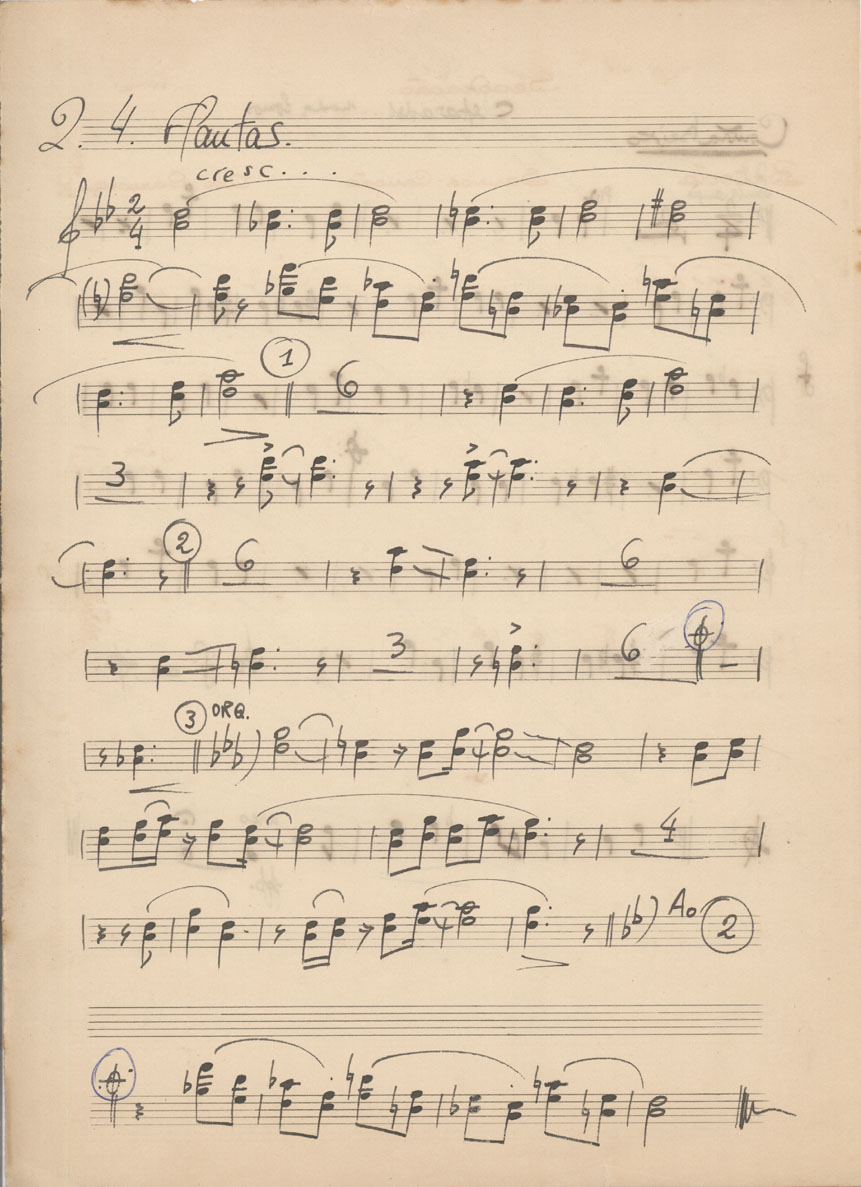 2. 4. Flautas.
cresc....
2
4
1
6
3
2
6
6
3
6
3 ORQ.
4
Ao 2